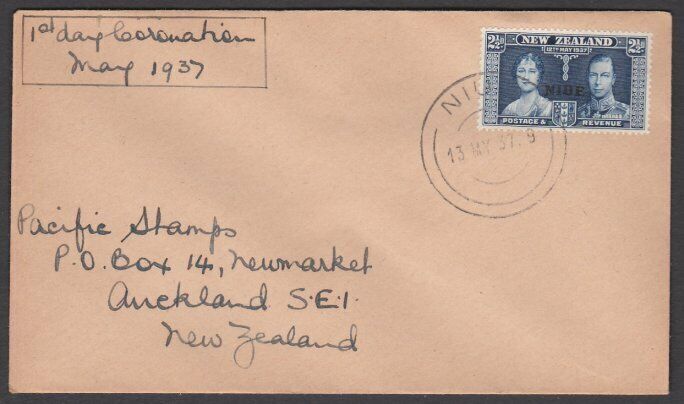 1st day Coronation
May 1937
2½ NEW ZEALAND 2½
12TH MAY 1937
NIUE
POSTAGE & REVENUE
NIU
13 MY 37.9
Pacific Stamps
P.O. Box 14, Newmarket
Auckland S.E.1.
New Zealand